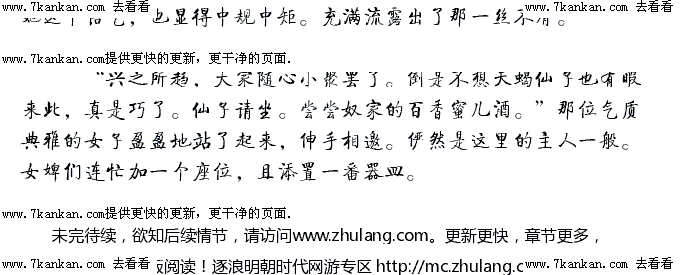 www.7kankan.com 去看看 www.7kankan.com 去看看
也显得中规中矩。充满流露出了那一丝不屑。
www.7kankan.com提供更快的更新，更干净的页面.
“兴之所趋，大家随心小聚罢了。倒是不想天蝎仙子也有暇
来此，真是巧了。仙子请坐。尝尝奴家的百香蜜儿酒。”那位气质
典雅的女子盈盈地站了起来，伸手相邀。俨然是这里的主人一般。
女婢们连忙加一个座位，且添置一番器皿。
www.7kankan.com提供更快的更新，更干净的页面.
未完待续，欲知后续情节，请访问www.zhulang.com。更新更快，章节更多，
www.7kankan.com 去看看 阅读！逐浪明朝时代网游专区 http://mc.zhulang.c www.7kankan.com 去看看